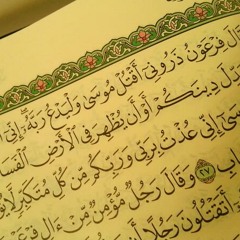 ـَالَ فِرْعَوْنُ ذَرُونِىٓ أَقْتُلْ مُوسَىٰ وَلْيَدْعُ رَبَّهُۥٓ إِنِّىٓ
ـدِّلَ دِينَكُمْ أَوْ أَن يُظْهِرَ فِى ٱلْأَرْضِ ٱلْفَسَا
ـسَىٰٓ إِنِّى عُذْتُ بِرَبِّى وَرَبِّكُم مِّن كُلِّ مُتَكَبِّرٍ لَّا
ـابِ ٢٧ وَقَالَ رَجُلٌ مُّؤْمِنٌ مِّنْ ءَالِ فِرْعَ
أَتَقْتُلُونَ رَجُلًا أَن